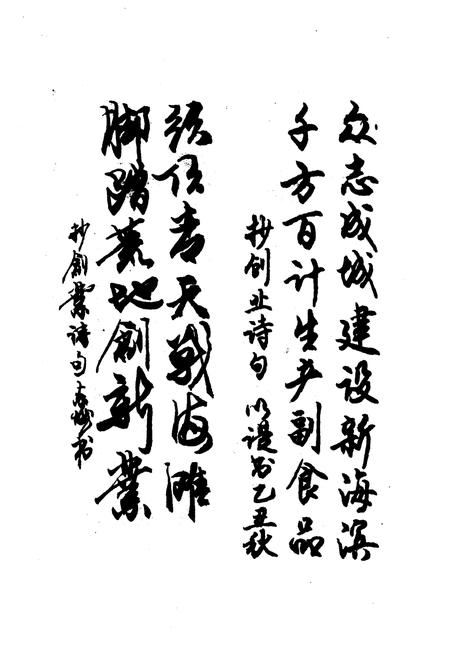 众志成城建设新海滨
千方百计生产副食品
抄创业诗句 以谟书乙丑秋
头顶青天战海滩
脚踏荒地创新業
抄創業诗句 书